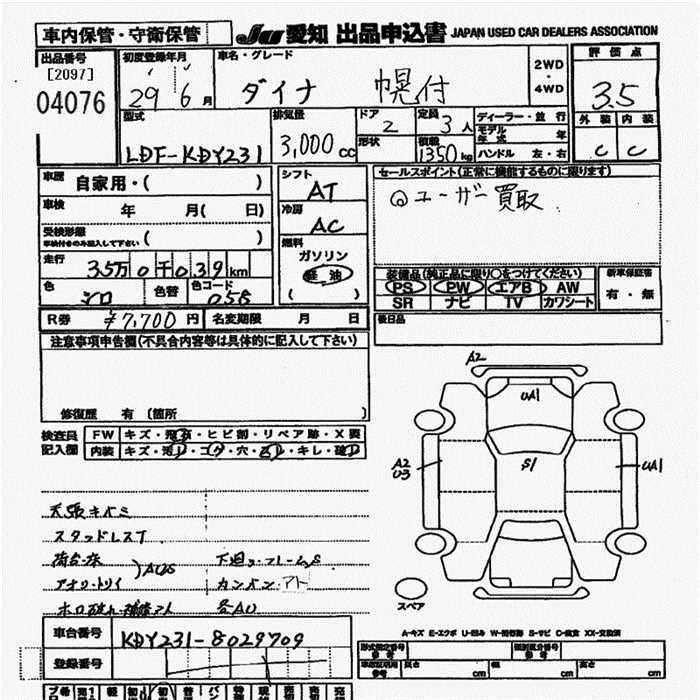 車内保管・守衛保管
JU 愛知 出品申込書 JAPAN USED CAR DEALERS ASSOCIATION
出品番号
[2097]
04076
初度登録年月
29 6 月
車名・グレード
ダイナ 幌付
2WD
・
4WD
評価点
3.5
外装 内装
C C
型式
LDF-KDY231
排気量
3,000 CC
ドア
2
形状
定員
3 人
積載
1350 kg
ディーラー・並行
モデル年式 年
ハンドル 左・右
車歴 自家用・( )
車検 年 月( 日)
受検形態
車検付きのみ記入して下さい ( )
走行
35万0千039km
色 シロ 色替 色コード 058
シフト
AT
冷房
AC
燃料
ガソリン
軽油
( )
セールスポイント(正常に機能するものに限ります)
◎ユーザー買取
装備品(純正品に限り○をつけてください)
PS PW エアB AW
SR ナビ TV カワシート
新車保証書
有・無
R券 ¥7,700 円 名変期限 月 日
後日品
注意事項申告欄(不具合内容等は具体的に記入して下さい)
修復歴 有 (箇所 )
検査員
記入欄
FW キズ・飛石・ヒビ割・リペア跡・X要
内装 キズ・汚レ・コゲ・穴・スレ・キレ・破レ
天張キバミ
スタッドレスT
荷台・床
アオリ・トリイ
AUS
下廻り・フレームS
カンバンアト
各AU
A2
UA1
S1
A2
U3
UA1
スペア
A-キズ E-エクボ U-凹み W-補修跡 S-サビ C-腐食 XX-交換済
車台番号 KDY231-8029709
登録番号
型式指定番号 類別区分番号
参考 参考
長さ cm 幅 cm 高さ cm